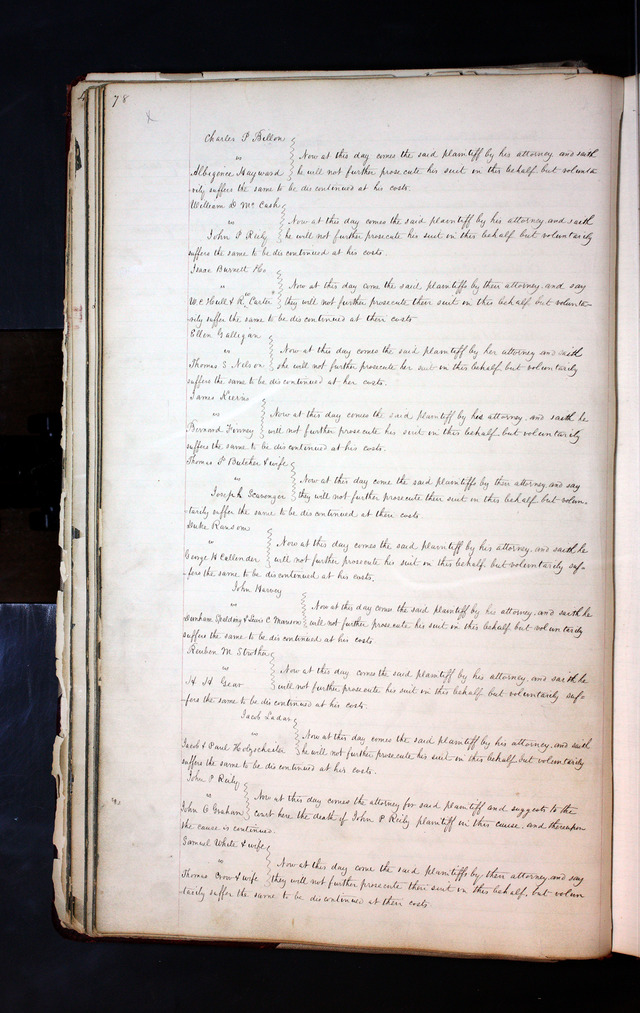 78
Charles P Billon
vs
Now at this day comes the said plaintiff by his attorney and saith
Albigence Hayward he will not further prosecute his suit in this behalf but volunta
rily suffers the same to be discontinued at his costs.
William D McCash
vs
Now at this day comes the said plaintiff by his attorney and saith
John P Reily he will not further prosecute his suit in this behalf but voluntarily
suffers the same to be discontinued at his costs.
Isaac Burnett &co
"
Now at this day come the said plaintiffs by their attorney, and say
& Carter they will not further prosecute their suit in this behalf but volunta-
rily suffer the same to be discontinued at their costs
Ellen Galligan
vs
Now at this day comes the said plaintiff by her attorney and saith
Thomas S Nelson she will not further prosecute her suit in this behalf, but voluntarily
suffers the same to be discontinued at her costs.
James Kierns
"
Now at this day comes the said plaintiff by his attorney, and saith he
Bernard Finney will not further prosecute his suit in this behalf, but voluntarily
suffers the same to be discontinued at his costs.
Thomas P Butcher & wife
vs
Now at this day come the said plaintiffs by their attorney, and say
Joseph Scavenger they will not further prosecute their suit in this behalf, but volun-
-tarily suffer the same to be discontinued at their costs.
Duke Ransom
vs
Now at this day comes the said plaintiff by his attorney, and saith he
George H Callender will not further prosecute his suit in this behalf but voluntarily suf-
-fers the same to be discontinued at his costs.
John Harvey
vs
Now at this day comes the said plaintiff by his attorney, and saith he
Durnham Spalding & Lewis C will not further prosecute his suit in this behalf but voluntarily
suffers the same to be discontinued at his costs.
Reuben M Strother
vs
Now at this day comes the said plaintiff by his attorney, and saith he
H H Gear will not further prosecute his suit in this behalf but voluntarily suf-
-fers the same to be discontinued at his costs.
Jacob Ladar
vs
Now at this day comes the said plaintiff by his attorney, and saith
Jacob & Paul Holzscheiter he will not further prosecute his suit in this behalf but voluntarily
suffers the same to be discontinued at his costs.
John P Reily
vs
Now at this day comes the attorney for said plaintiff and suggests to the
John C Graham court here the death of John P Reily plaintiff in this cause, and thereupon
the cause is continued.
Samuel White & wife
vs
Now at this day come the said plaintiffs by their attorney, and say
Thomas Crow & wife they will not further prosecute their suit in this behalf, but volun
-tarily suffer the same to be discontinued at their costs.